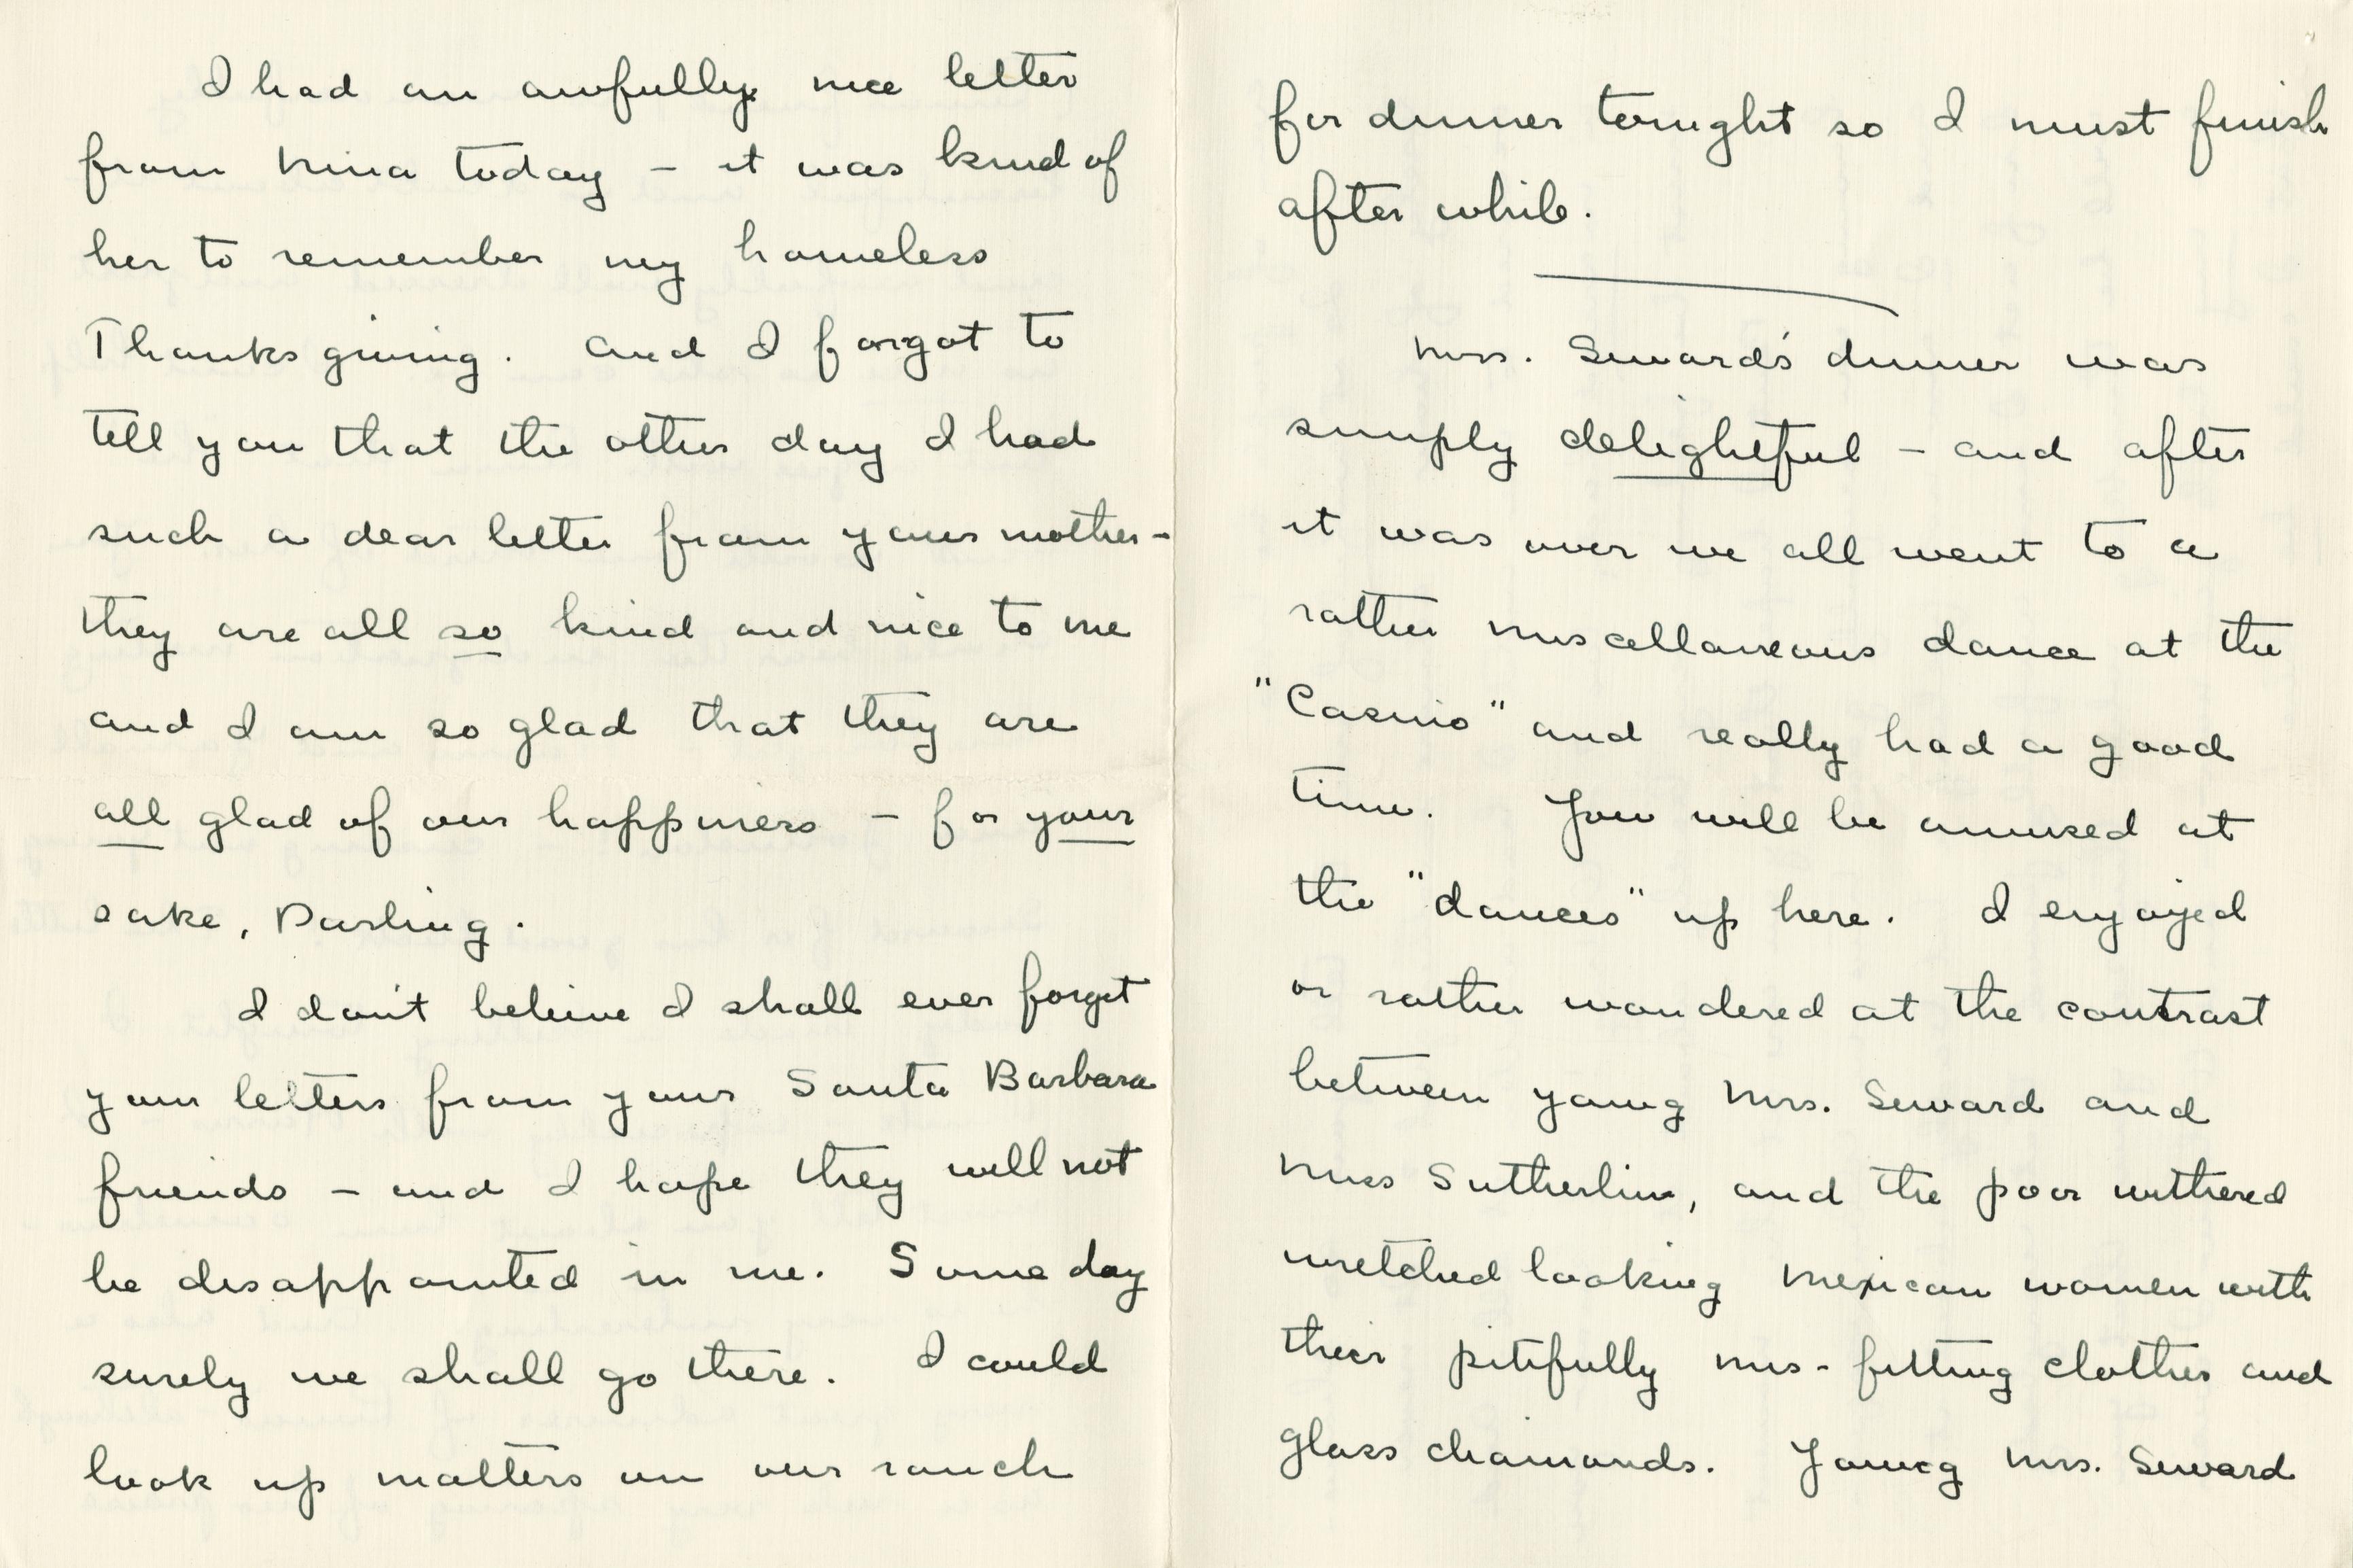 I had an awfully nice letter
from Nina today – it was kind of
her to remember my homeless
Thanksgiving. And I forgot to
tell you that the other day I had
such a dear letter from your mother –
they are all so kind and nice to me
and I am so glad that they are
all glad of our happiness – for your
sake, Darling.
I don't believe I shall ever forget
your letters from your Santa Barbara
friends – and I hope they will not
be disappointed in me. Some day
surely we shall go there. I could
look up matters on our ranch
for dinner tonight so I must finish
after while.
Mrs. Seward's dinner was
simply delightful – and after
it was over we all went to a
rather miscellaneous dance at the
"Casino" and really had a good
time. You will be amused at
the "dances" up here. I enjoyed
or rather wondered at the contrast
between young Mrs. Seward and
Miss Sutherlin, and the poor withered
wretched looking Mexican women with
their pitifully mis-fitting clothes and
glass diamonds. Young Mrs. Seward